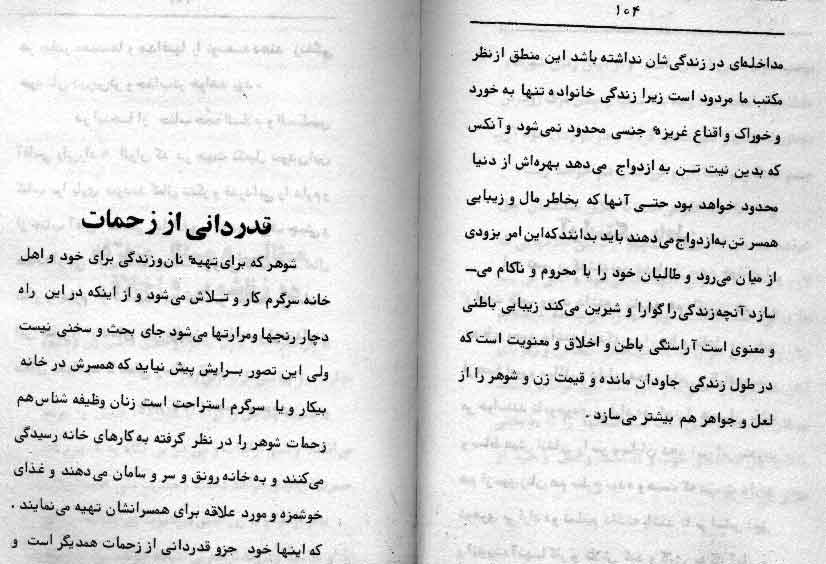 ۱۰۴
مداخله‌ای در زندگی‌شان نداشته باشد این منطق از نظر
مکتب ما مردود است زیرا زندگی خانواده تنها به خورد
و خوراک و اقناع غریزهٔ جنسی محدود نمی‌شود و آنکس
که بدین نیت تــن به ازدواج می‌دهد بهره‌اش از دنیا
محدود خواهد بود حتــی آنها که بخاطر مال و زیبایی
همسر تن به‌ازدواج می‌دهند باید بدانند که این امر بزودی
از میان می‌رود و طالبان خود را با محروم و ناکام می‌ــ
سازد آنچه زندگی را گوارا و شیرین می‌کند زیبایی باطنی
و معنوی است آراستگی باطن و اخلاق و معنویت است که
در طول زندگی جاودان مانده و قیمت زن و شوهر را از
لعل و جواهر هم بیشتر می‌سازد .
قدردانی از زحمات
شوهر که برای تهیهٔ نان و زندگی برای خود و اهل
خانه سرگرم کار و تــلاش می‌شود و از اینکه در این راه
دچار رنجها و مرارتها می‌شود جای بحث و سخنی نیست
ولی این تصور بــرایش پیش نیاید که همسرش در خانه
بیکار و یا سرگرم استراحت است زنان وظیفه شناس هم
زحمات شوهر را در نظر گرفته به کارهای خانه رسیدگی
می‌کنند و به خانه رونق و سر و سامان می‌دهند و غذای
خوشمزه و مورد علاقه برای همسرانشان تهیه می‌نمایند .
که اینها خود جزو قدردانی از زحمات همدیگر است و